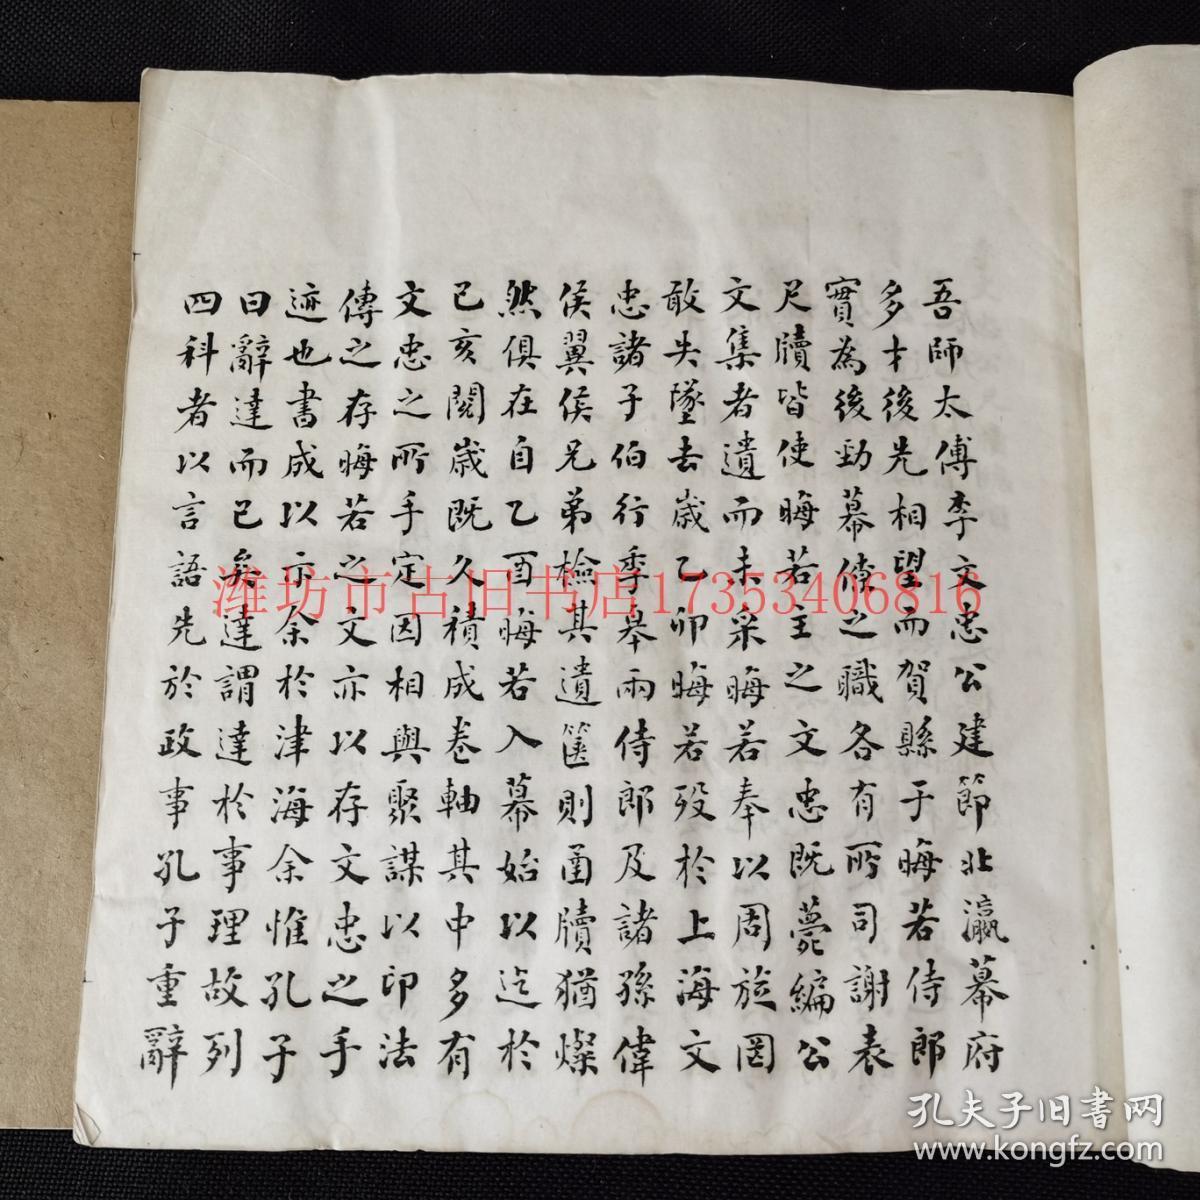 吾師太傅李文忠公建節北瀛幕府
多才後先相望而賀縣于晦若侍郎
實為後勁幕僚之職各有所司謝表
尺牘皆使晦若主之文忠既薨編公
文集者遺而未采晦若奉以周旋罔
敢失墜去歲乙卯晦若歿於上海文
忠諸子伯行季皋兩侍郎及諸孫偉
侯翼侯兄弟檢其遺篋則圅牘猶燦
然俱在自乙酉晦若入幕始以迄於
己亥閱歲既久積成卷軸其中多有
文忠之所手定因相與聚謀以印法
傳之存晦若之文亦以存文忠之手
迹也書成以示余於津海余惟孔子
曰辭達而已矣達謂達於事理故列
四科者以言語先於政事孔子重辭
潍坊市古旧书店17353406816
孔夫子旧书网
www.kongfz.com